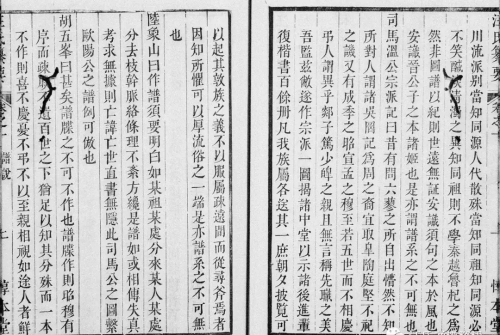 川流派别當知同源人代散殊當知同源必
不笑
之異知同祖則不學秦越譽杞之爲
然非圖譜以紀則世遠無証安識須句之本於風
安識晉公子之本諸姬也是亦謂譜系之不可無也
司馬溫公宗派記曰昔有問六藝之所自出懵然不知
所對人謂諸吳圖記爲周之裔宜取阜陶庭堅不祀
之譏又有成季之昭宣孟之穆至若五世而不相慶
弔人謂異乎郯子篤少皡之親且無言稱先職之美
吾監茲敝遂作宗派一圖揭諸中堂以示諸後進輩
復楷書百餘册凡我族屬各送其一庶朝夕披覽可
以起其敦族之義不以服屬疏遠間而從尋斧焉者
因知所懼可以厚流俗之一端是亦譜系之不可無
也
陸象山曰作譜須要明白如某祖某處分來某人某處
分去枝幹脈絡條理不紊方纔是譜如或相傳失真
考求無據則亡諱亡世直書無隱此司馬公之圖繫
歐陽公之譜例可做也
胡五峯曰甚矣譜牒之不可不作也譜牒作則昭穆有
序而疏
百世之下猶足以知其分殊而一本
不作則喜不慶憂不弔不以至親相視如途人者鮮